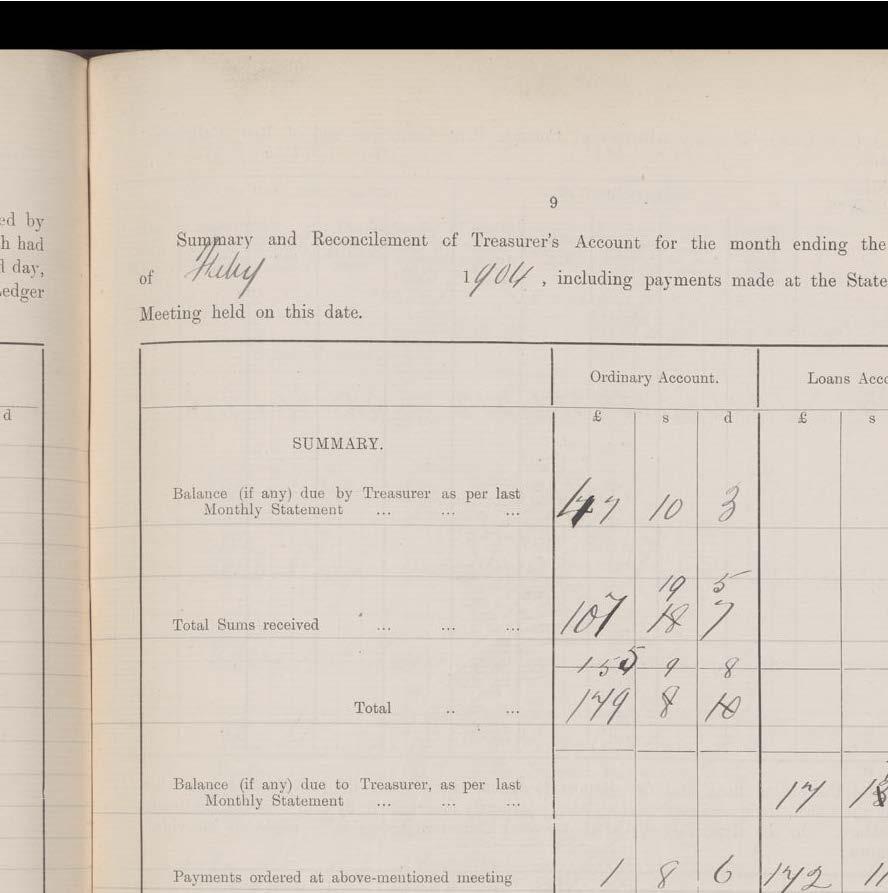 ed by
h had
day,
Ledger
d
9
Summary and Reconcilement of Treasurer's Account for the month ending the
of 1904, including payments made at the State
Meeting held on this date.
Ordinary Account. Loans Acco
£ s d £ s
SUMMARY.
Balance (if any) due by Treasurer as per last
Monthly Statement ... ... ... 47 10 3
19 5
Total Sums received ... ... ... 107 18 7
155 9 8
Total .. ... 8 10
Balance (if any) due to Treasurer, as per last
Monthly Statement ... ... ... 17
Payments ordered at above-mentioned meeting 1 8 6 172 11